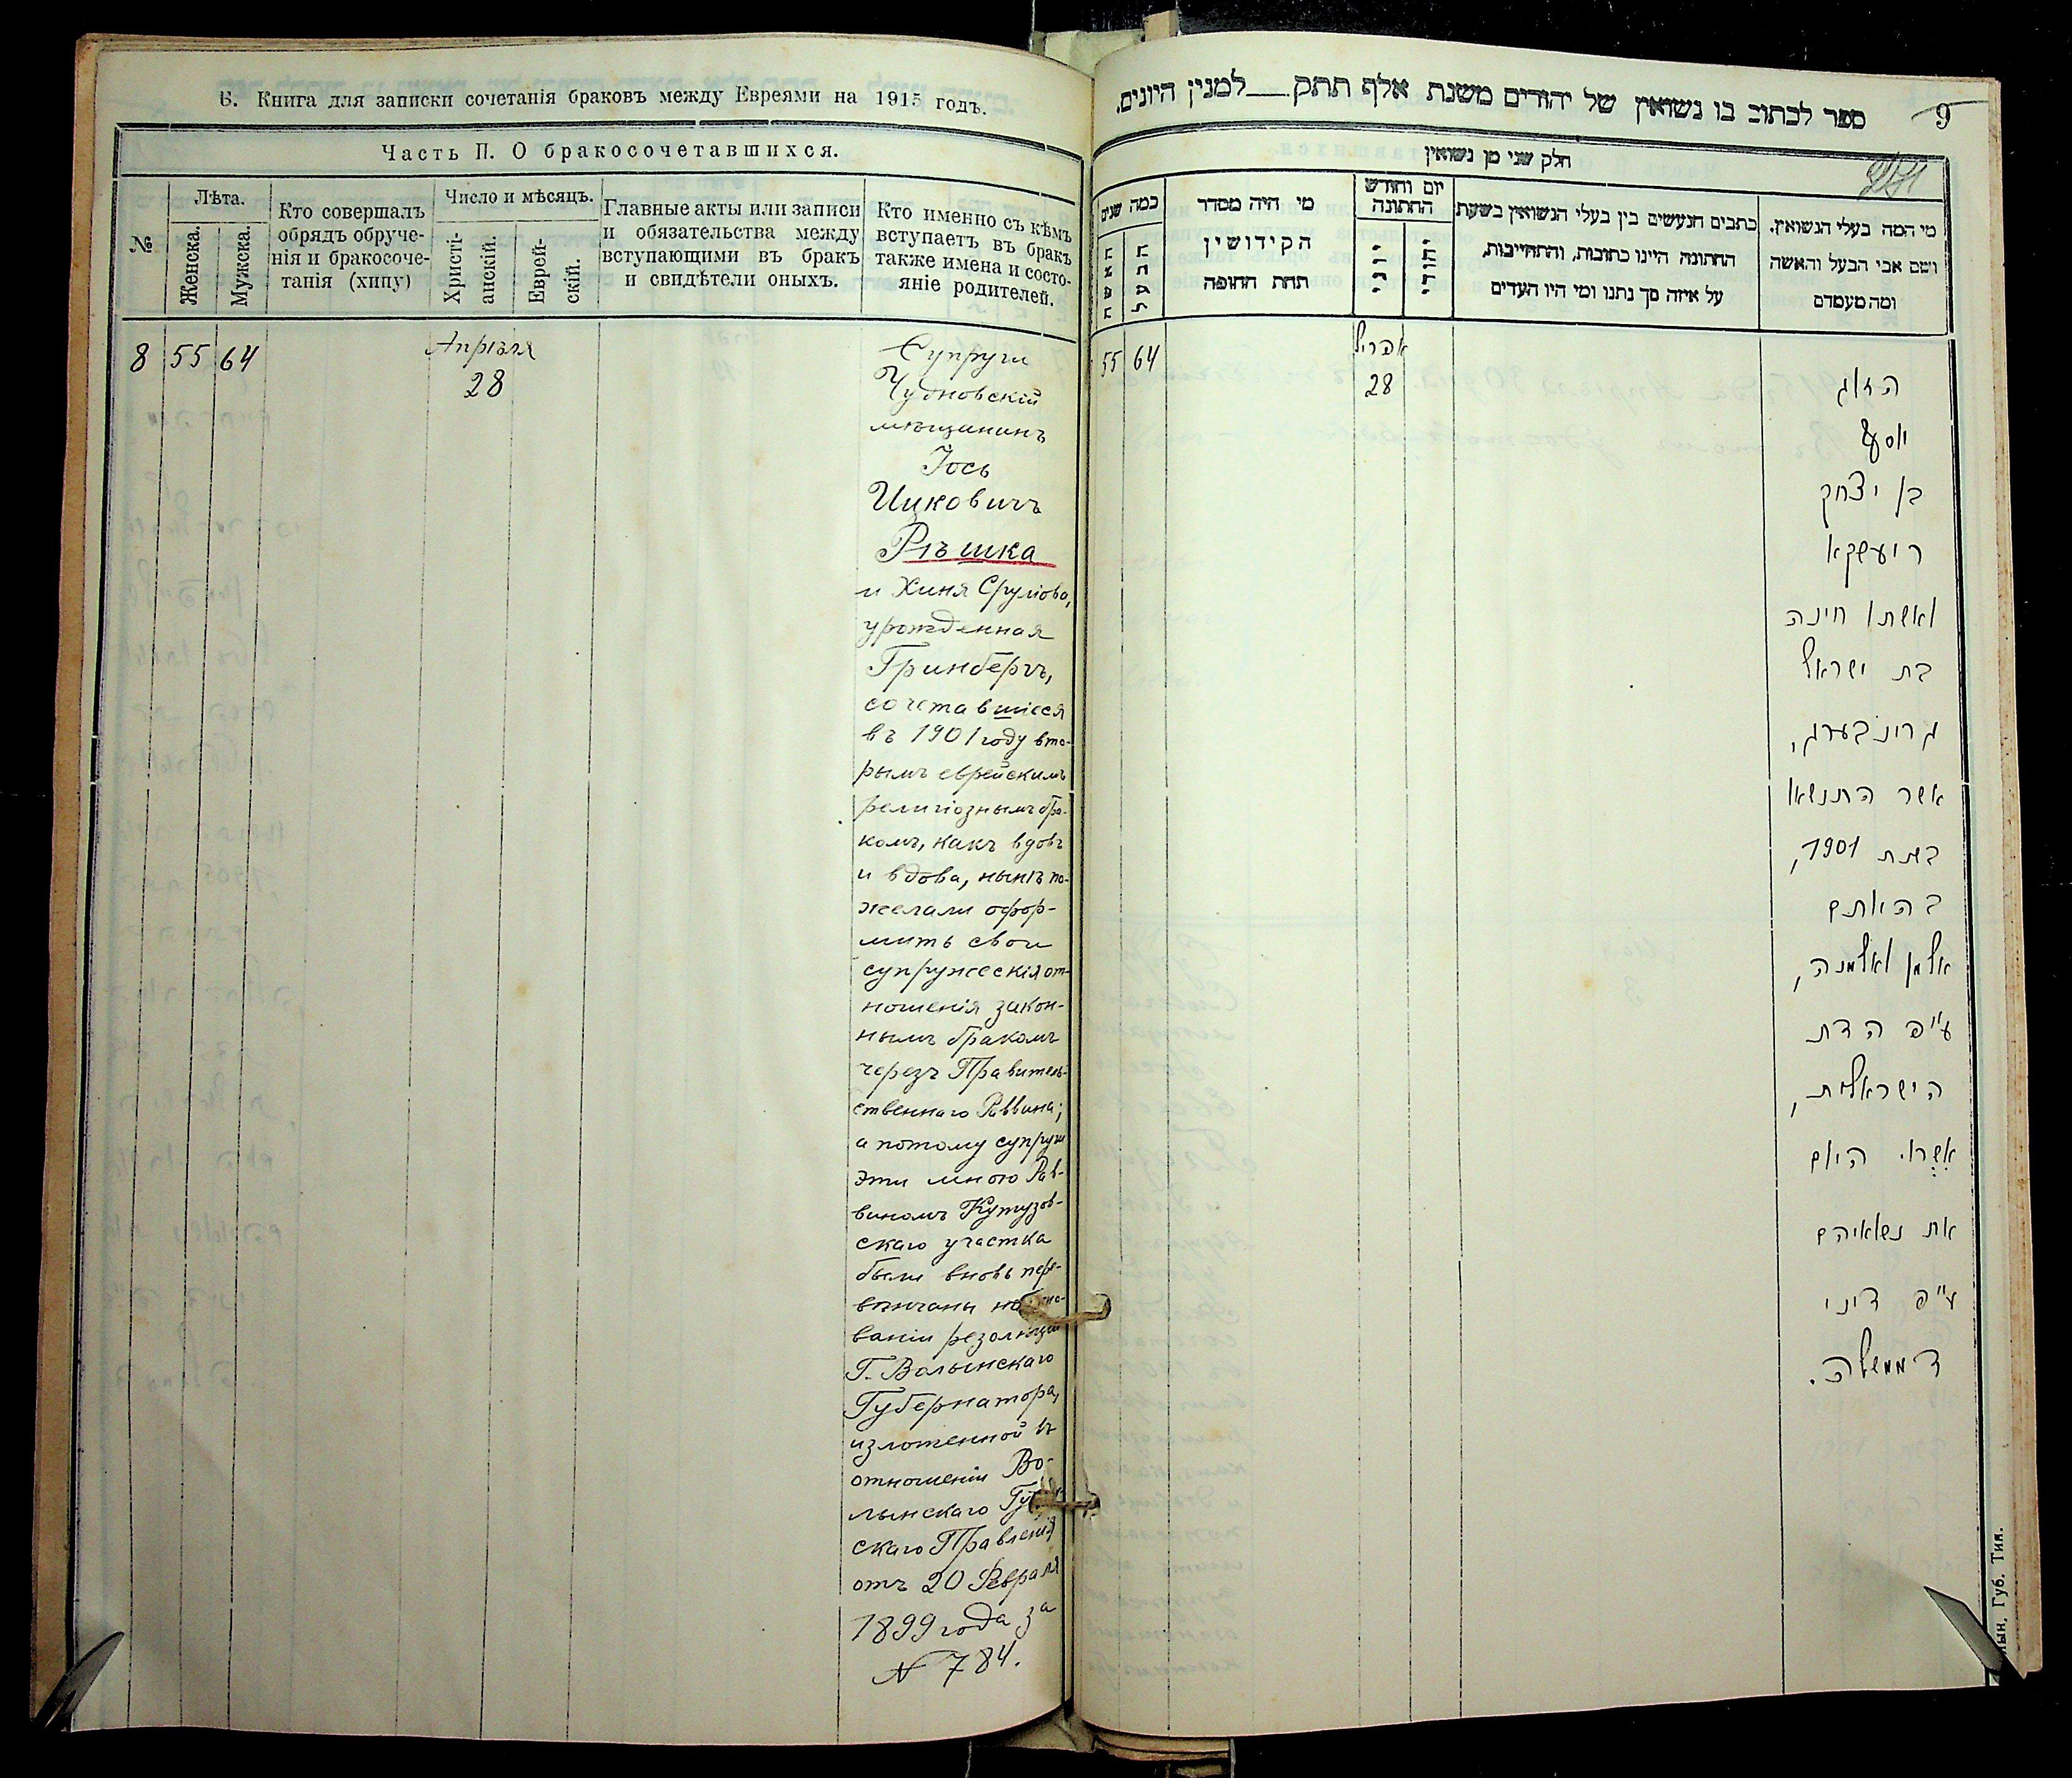 Б. Книга для записки сочетанія браковъ между Евреями на 1915 годъ.
Часть II. О бракосочетавшихся.
№
Лѣта.
Женска.
Мужска.
Кто совершалъ
обрядъ обруче-
нія и бракосоче-
танія (хипу)
Число и мѣсяцъ.
Христі-
анскій.
Еврей-
скій.
Главные акты или записи
и обязательства между
вступающими въ бракъ
и свидѣтели оныхъ.
Кто именно съ кѣмъ
вступаетъ въ бракъ
также имена и состо-
яніе родителей.
8 55 64
Апрѣля
28
Супруги
Чудновскій
мѣщанинъ
Іось
Ицковичъ
Рѣшка
и Хиня Сруліова,
урожденная
Гринбергъ,
сочетавшіеся
въ 1901 году вто-
рымъ еврейскимъ
религіознымъ бра-
комъ, какъ вдовъ
и вдова, нынѣ по-
желали офор-
мить свои
супружескія от-
ношенія закон-
нымъ бракомъ
черезъ Правитель-
ственнаго Раввина;
а потому супруги
эти мною Рав-
виномъ Кутузов-
скаго участка
были вновь пере-
вѣнчаны на
ваніи резолюціи
Г. Волынскаго
Губернатора,
изложенной въ
отношеніи Во-
лынскаго
скаго Правленія
отъ 20 Февраля
1899 года за
№ 784.
ספר לכתוב בו נשואין של יהודים משנת אלף תתק למנין היונים.
9
חלק שני מן נשואין
מי המה בעלי הנשואין.
ושם אבי הבעל והאשה
ומה מעמדם
כתבים הנעשים בין בעלי הנשואין בשעת
החתונה היינו כתובות, והתחייבות,
על איזה סך נתנו ומי היו העדים
יום וחודש
החתונה
יהודי
יוני
מי היה מסדר
הקידושין
תחת החופה
כמה שנים
חתן
האשה
55 64
אפריל
28
הזוג
יוסף
בן יצחק
ריעשקא
ואשתו חינה
בת ישראל
גרינבערג,
אשר התנשאו
בשנת 1901,
בהאותם
אלמן ואלמנה,
ע״פ הדת
הישראלית,
אשרו היום
את נשואיהם
ע״פ דיני
דממשלה.
Губ. Тип.